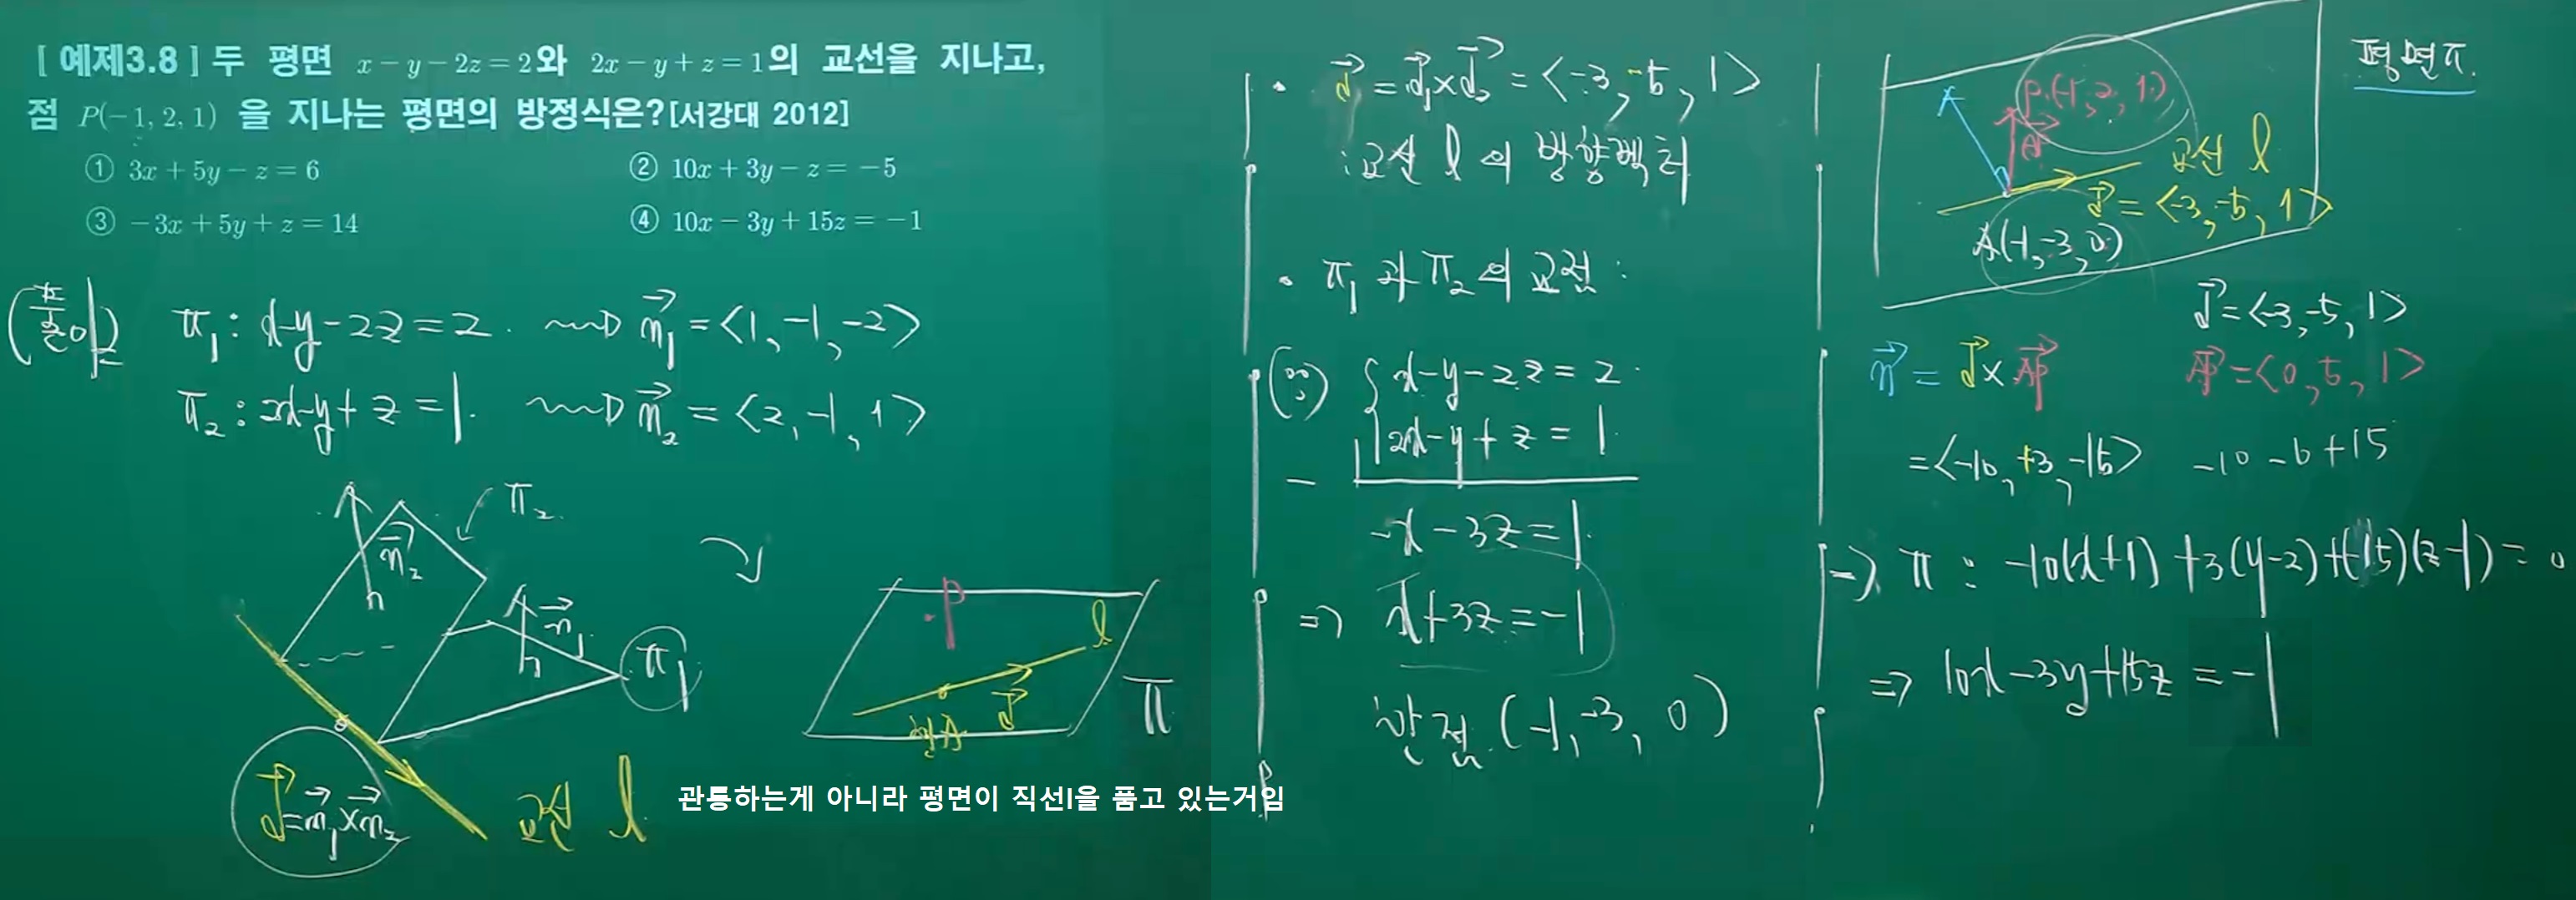 [ 예제3.8 ] 두 평면 x − y − 2z = 2 와 2x − y + z = 1 의 교선을 지나고,
점 P(−1, 2, 1) 을 지나는 평면의 방정식은?[서강대 2012]
① 3x + 5y − z = 6
② 10x + 3y − z = −5
③ −3x + 5y + z = 14
④ 10x − 3y + 15z = −1
(풀이)
π₁ : x-y-2z=2. ⟿ n₁ = <1, -1, -2>
π₂ : 2x-y+z=1. ⟿ n₂ = <2, -1, 1>
n₂
π₂
n₁
π₁
d=n₁×n₂
교선 l
P
l
d
한점
π
관통하는게 아니라 평면이 직선l을 품고 있는거임
· d = n₁×n₂ = <-3, -5, 1>
: 교선 l 의 방향벡터
· π₁ 과 π₂ 의 교점 :
(∵) x-y-2z = 2
2x-y+z = 1
-x-3z=1
⇒ x+3z=-1
한점 (-1, -3, 0)
평면π.
P(-1, 2, 1)
AP
교선 l
d = <-3, -5, 1>
A(-1, -3, 0)
d=<-3, -5, 1>
n = d × AP
AP=<0, 5, 1>
=<-10, +3, -15> -10-6+15
⇒ π : -10(x+1)+3(y-2)+(-15)(z-1)=0
⇒ 10x-3y+15z = -1